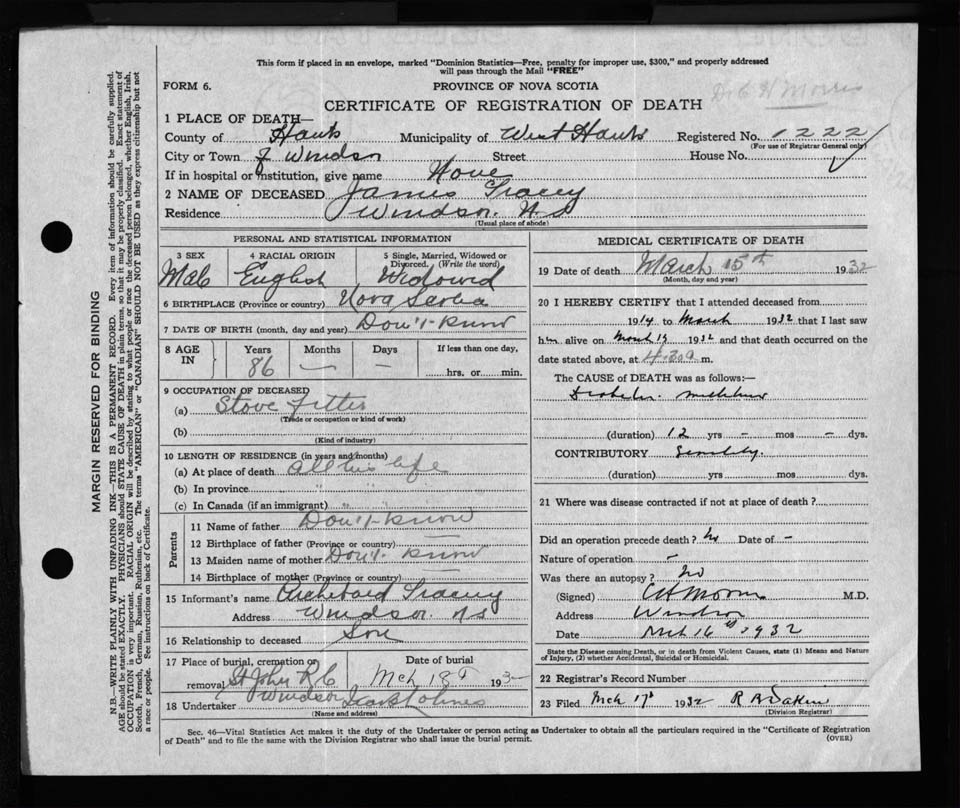 This form if placed in an envelope, marked "Dominion Statistics—Free, penalty for improper use, $300," and properly addressed
will pass through the Mail "FREE"
FORM 6.
PROVINCE OF NOVA SCOTIA
CERTIFICATE OF REGISTRATION OF DEATH
Morris
1 PLACE OF DEATH—
County of Hants Municipality of West Hants Registered No. 1222
(For use of Registrar General only)
City or Town of Windsor Street House No.
If in hospital or institution, give name None
2 NAME OF DECEASED James Tracey
Residence Windsor. N.S
(Usual place of abode)
PERSONAL AND STATISTICAL INFORMATION
3 SEX 4 RACIAL ORIGIN 5 Single, Married, Widowed or
Divorced. (Write the word)
Male English Widowed
6 BIRTHPLACE (Province or country) Nova Scotia
7 DATE OF BIRTH (month, day and year) Don't-know
8 AGE IN Years Months Days If less than one day,
86 — — hrs. or min.
9 OCCUPATION OF DECEASED
(a) Stove Fitter
(Trade or occupation or kind of work)
(b)
(Kind of industry)
10 LENGTH OF RESIDENCE (in years and months)
(a) At place of death all his life
(b) In province " "
(c) In Canada (if an immigrant) " "
Parents
11 Name of father Don't-know
12 Birthplace of father (Province or country)
13 Maiden name of mother Don't- know
14 Birthplace of mother (Province or country)
15 Informant's name Archibald Tracey
Address Windsor. N S
16 Relationship to deceased Son
17 Place of burial, cremation or Date of burial
removal St John R C Mch 18 1932
Windsor
18 Undertaker
(Name and address)
MEDICAL CERTIFICATE OF DEATH
19 Date of death March 15th 1932
(Month, day and year)
20 I HEREBY CERTIFY that I attended deceased from
1914 to March 1932 that I last saw
him alive on March 1932 and that death occurred on the
date stated above, at 4.30 a m.
The CAUSE OF DEATH was as follows:—
Diabetes mellitus
(duration) 12 yrs - mos - dys.
CONTRIBUTORY Senility.
(duration) yrs. mos. dys.
21 Where was disease contracted if not at place of death?
Did an operation precede death? No Date of -
Nature of operation -
Was there an autopsy? No
(Signed) Morris M.D.
Address Windsor
Date Mch 16th 1932
State the Disease causing Death, or in death from Violent Causes, state (1) Means and Nature
of Injury, (2) whether Accidental, Suicidal or Homicidal.
22 Registrar's Record Number
23 Filed Mch 17 1932 R
(Division Registrar)
Sec. 46—Vital Statistics Act makes it the duty of the Undertaker or person acting as Undertaker to obtain all the particulars required in the "Certificate of Registration
of Death" and to file the same with the Division Registrar who shall issue the burial permit.
(OVER)
MARGIN RESERVED FOR BINDING
N.B.—WRITE PLAINLY WITH UNFADING INK—THIS IS A PERMANENT RECORD. Every item of information should be carefully supplied.
AGE should be stated EXACTLY. PHYSICIANS should STATE CAUSE OF DEATH in plain terms, so that it may be properly classified. Exact statement of
OCCUPATION is very important. RACIAL ORIGIN will be described by stating to what people or race the deceased person belonged, whether English, Irish,
Scotch, French, German, Russian, Ruthenian, etc. The terms "AMERICAN" or "CANADIAN" SHOULD NOT BE USED as they express citizenship but not
a race or people. See instructions on back of Certificate.